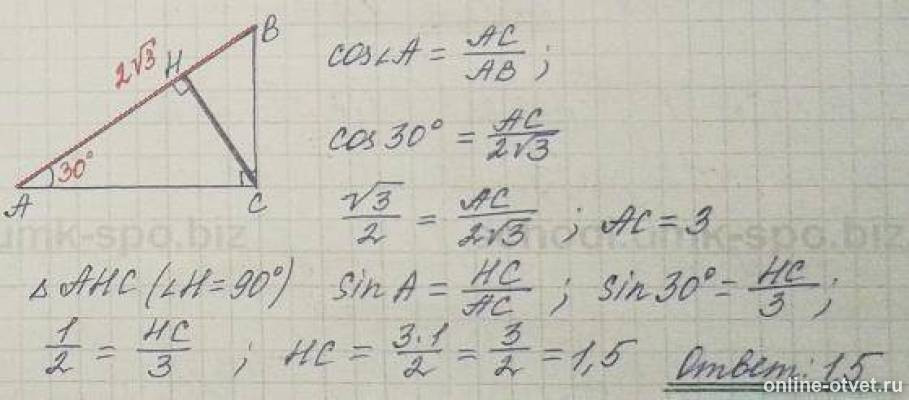 B
2√3
H
30°
A
C
cos∠A = AC/AB ;
cos 30° = AC/2√3
√3/2 = AC/2√3 ; AC = 3
△AHC (∠H = 90°) sin A = HC/AC ; sin 30° = HC/3 ;
1/2 = HC/3 ; HC = 3·1/2 = 3/2 = 1,5 Ответ: 1,5
umk-spo.biz
umk-spo.biz
online-otvet.ru